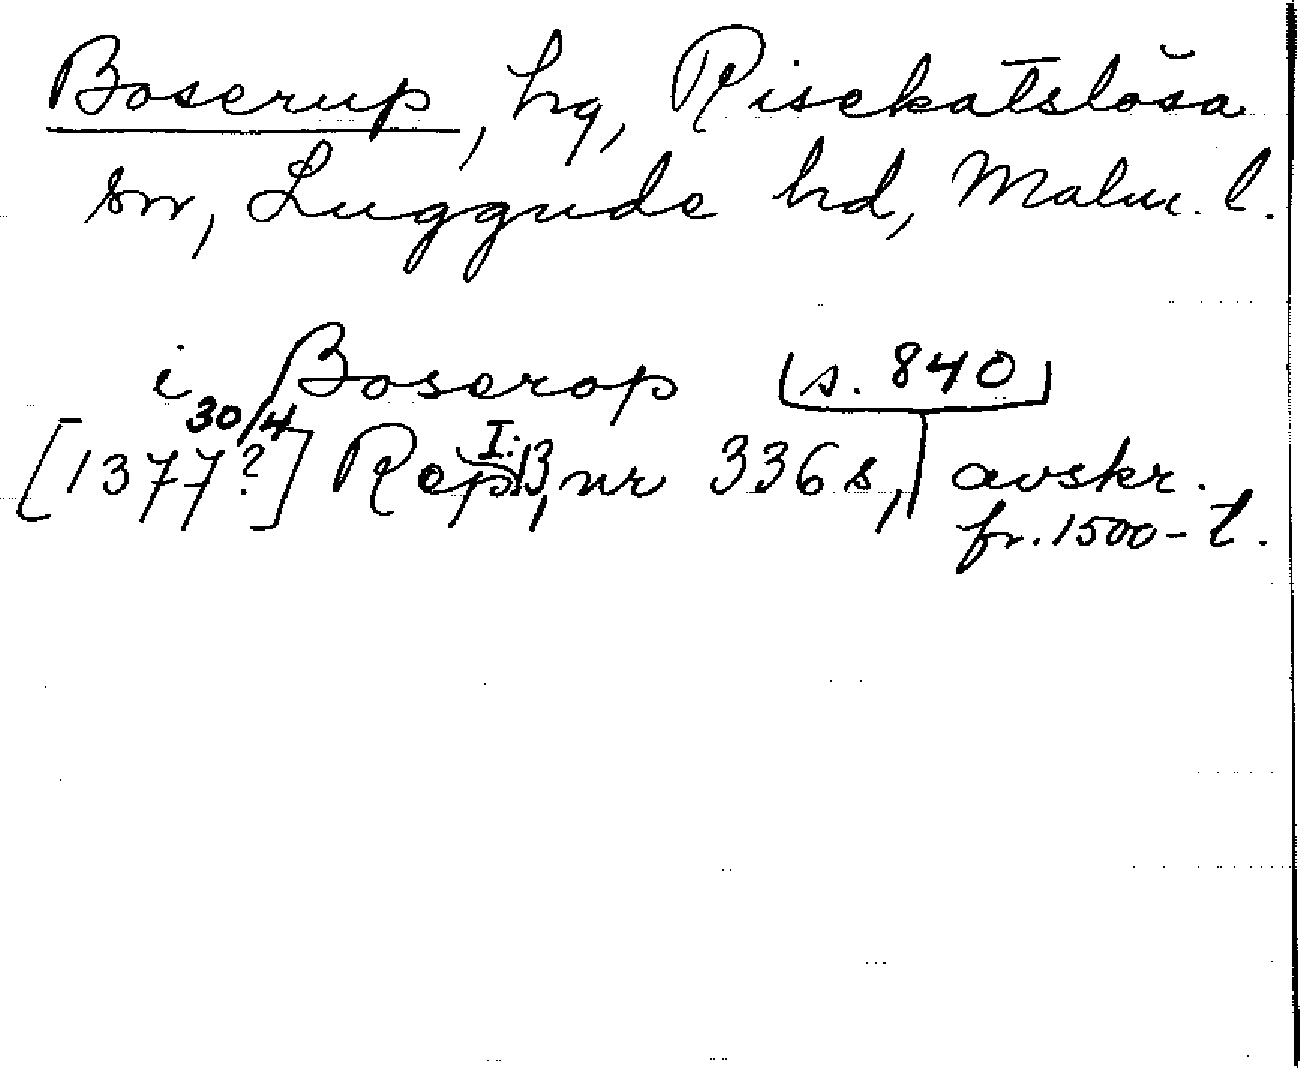 Boserup, hg, Risekatslösa
sn, Luggude hd, Malm. l.
i Boserop
[1377? 30/4] Rep I:3, nr 3368, s. 840, avskr.
fr. 1500-t.